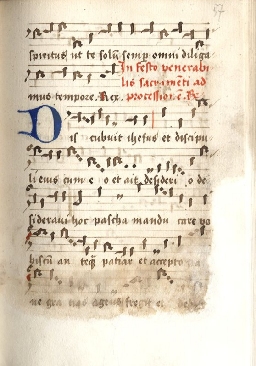 57
spiritus ut te solū semp omni diliga
In festo venerabi
lis sacramēti ad
mus tempore. Rex. processionē. Re
Dis cubuit ihesus et discipu
li eius cum eo et ait desideri o de
sideravi hoc pascha mandu care vo
biscū an teqͣ patiar et accepto
ne gra tias agens fregit et